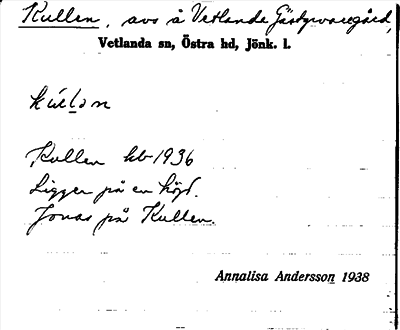 Kullen, avs å Vetlanda Gästgivaregård,
Vetlanda sn, Östra hd, Jönk. l.
Kullen hb 1936
Ligger på en höjd.
Jonas på Kullen.
Annalisa Andersson 1938